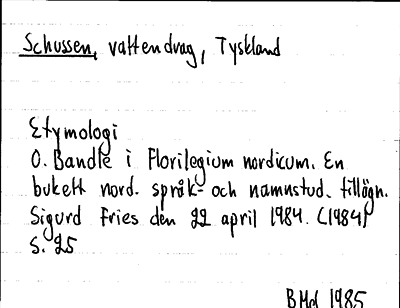 Schussen, vattendrag, Tyskland
Etymologi
O. Bandle i Florilegium nordicum. En
bukett nord. språk- och namnstud. tillägn.
Sigurd Fries den 22 april 1984. (1984)
S. 25
BHd 1985